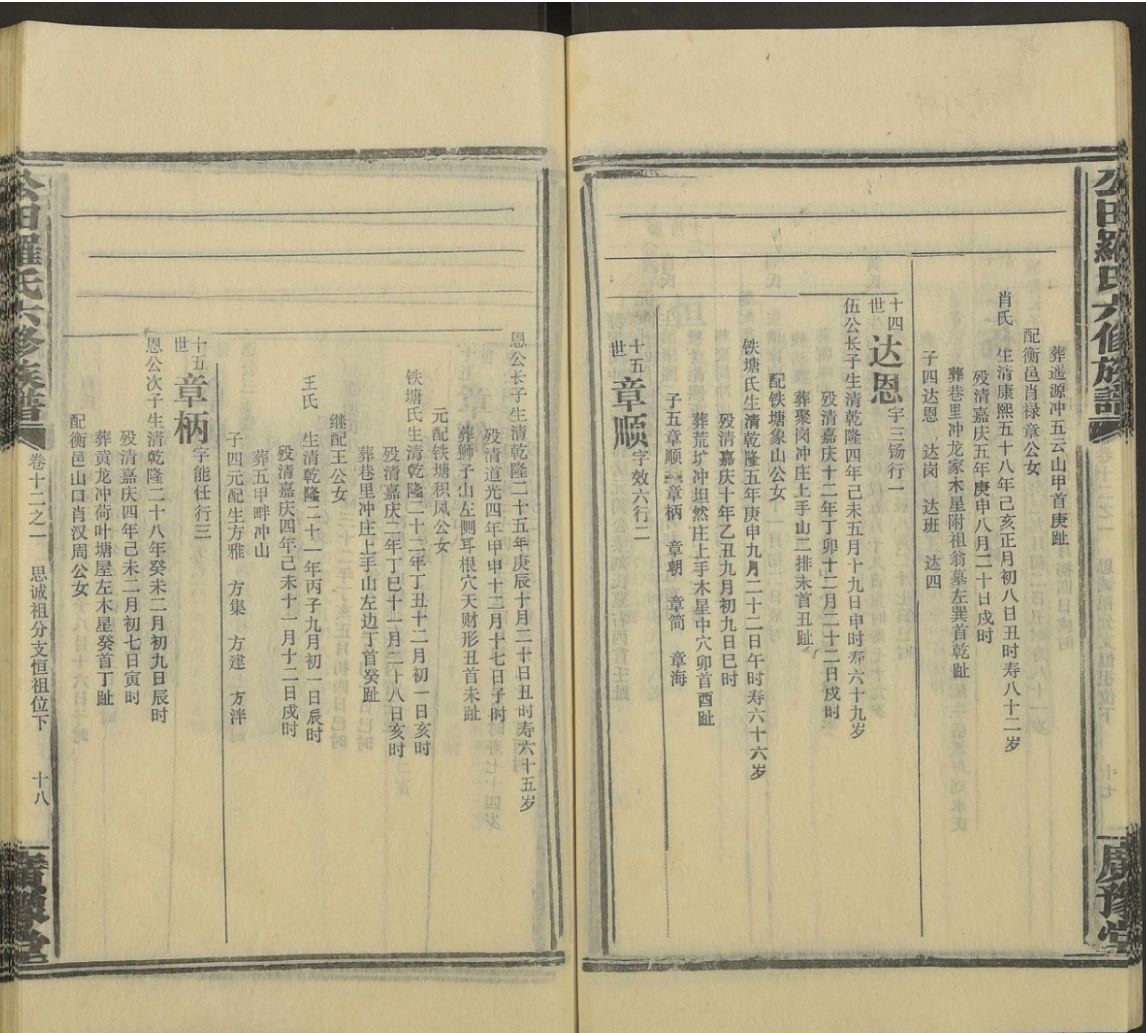 公田羅氏六修族譜
廣豫堂
葬遥源冲五云山甲首庚趾
配衡邑肖禄章公女
肖氏 生清康熙五十八年己亥正月初八日丑时寿八十二岁
殁清嘉庆五年庚申八月二十日戌时
葬巷里冲龙家木星附祖翁墓左巽首乾趾
子四达恩 达岗 达班 达四
十四世 达恩 字三锡行一
伍公长子生清乾隆四年己未五月十九日申时寿六十九岁
殁清嘉庆十二年丁卯十二月二十二日戌时
葬聚岗冲庄上手山二排未首丑趾
配铁塘象山公女
铁塘氏生清乾隆五年庚申九月二十二日午时寿六十六岁
殁清嘉庆十年乙丑九月初九日巳时
葬荒圹冲坦然庄上手木星中穴卯首酉趾
子五章顺 章柄 章朝 章简 章海
十五世 章顺 字效六行二
恩公长子生清乾隆二十五年庚辰十月二十日丑时寿六十五岁
殁清道光四年甲申十二月十七日子时
葬狮子山左侧耳根穴天财形丑首未趾
元配铁塘积风公女
铁塘氏生清乾隆二十二年丁丑十二月初一日亥时
殁清嘉庆二年丁巳十一月二十八日亥时
葬巷里冲庄上手山左边丁首癸趾
继配王公女
王氏 生清乾隆二十一年丙子九月初一日辰时
殁清嘉庆四年己未十一月十二日戌时
葬五甲畔冲山
子四元配生方雅 方集 方建 方泮
十五世 章柄 字能任行三
恩公次子生清乾隆二十八年癸未二月初九日辰时
殁清嘉庆四年己未二月初七日寅时
葬贡龙冲荷叶塘屋左木星癸首丁趾
配衡邑山口肖汉周公女
公田羅氏六修族譜 卷十二之一 思诚祖分支恒祖位下 十八 廣豫堂